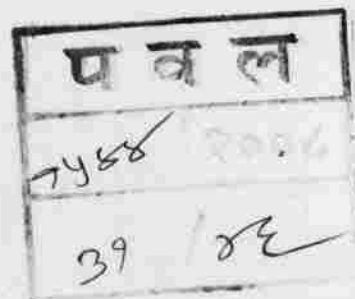 प व ल
१५४४
३१ / ४६